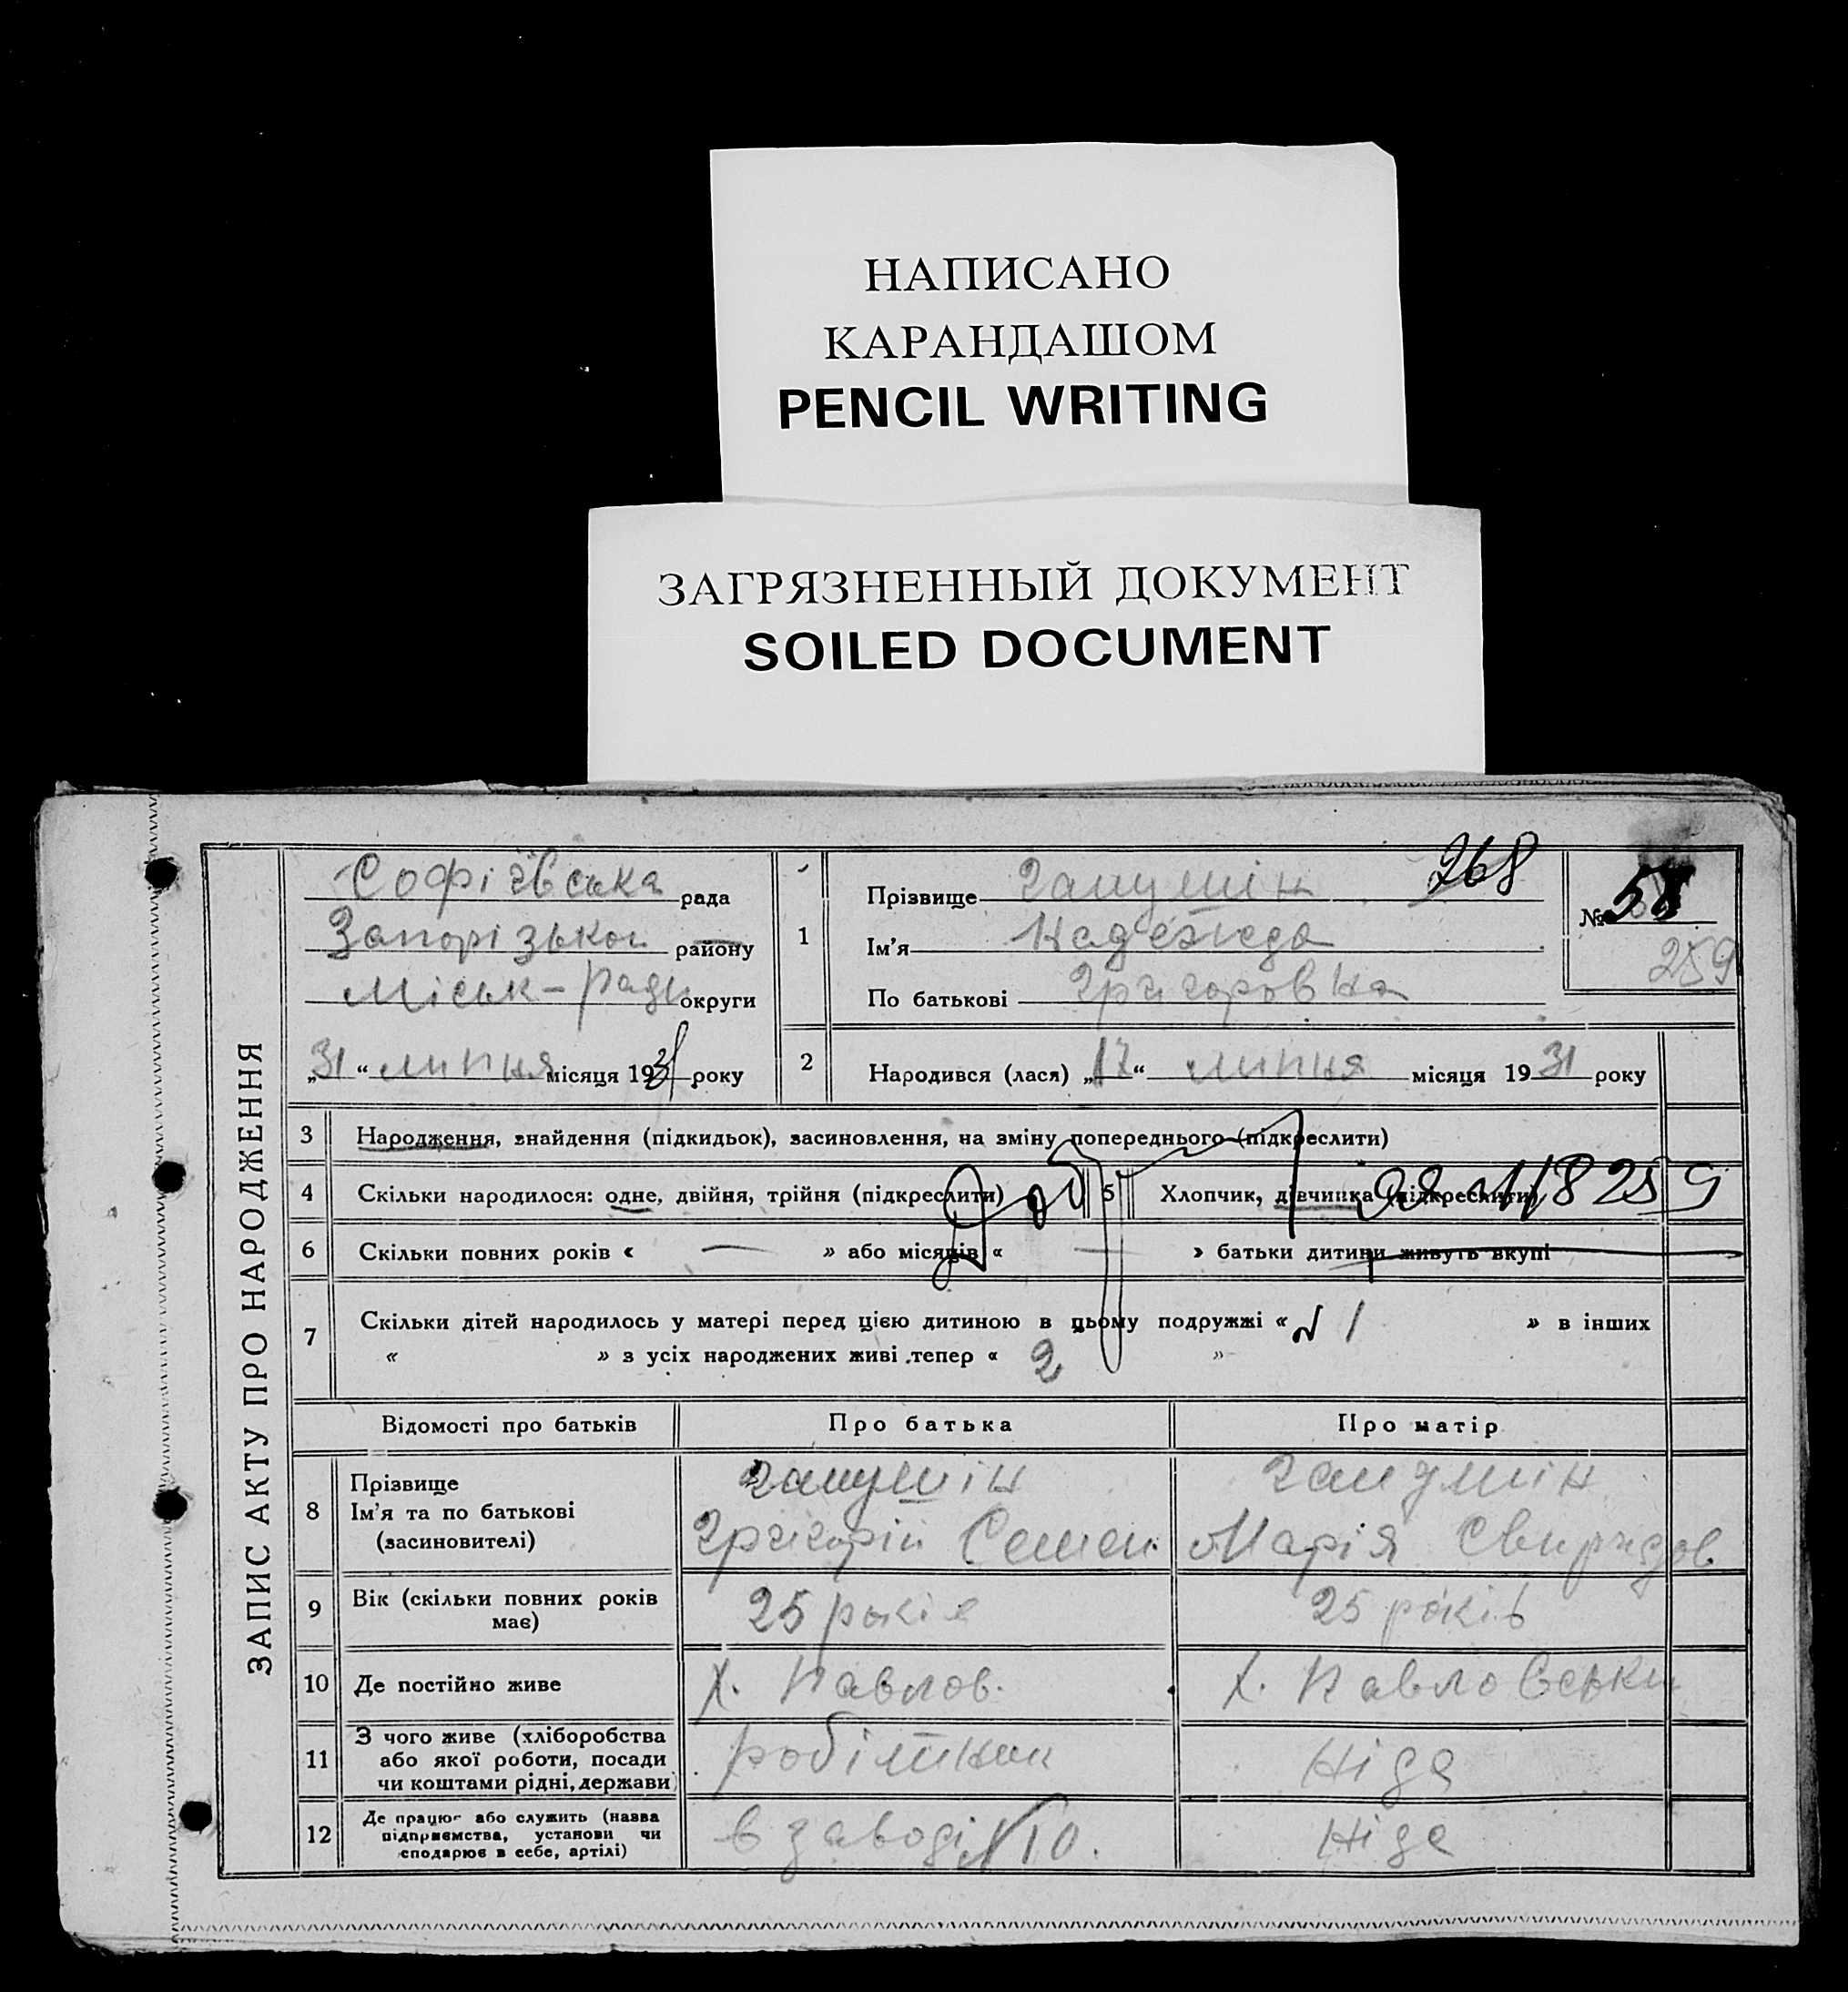 НАПИСАНО
КАРАНДАШОМ
PENCIL WRITING
ЗАГРЯЗНЕННЫЙ ДОКУМЕНТ
SOILED DOCUMENT
ЗАПИС АКТУ ПРО НАРОДЖЕННЯ
Софіївська рада
Запорізької району
Міськ-ради округи
„31“ липня місяця 1931 року
1
Прізвище 268
Ім'я Надежда
По батькові Григоровна
№ 58
259
2 Народився (лася) „17“ липня місяця 1931 року
3 Народження, знайдення (підкидьок), засиновлення, на зміну попереднього (підкреслити)
4 Скільки народилося: одне, двійня, трійня (підкреслити) 5 Хлопчик, дівчинка (підкреслити)
6 Скільки повних років « — » або місяців « — » батьки дитини живуть вкупі
7 Скільки дітей народилось у матері перед цією дитиною в цьому подружжі « 1 » в інших
« » з усіх народжених живі тепер « 2 »
Відомості про батьків Про батька Про матір
8 Прізвище
Ім'я та по батькові Григорій Семен. Марія Свиридов
(засиновителі)
9 Вік (скільки повних років має) 25 років 25 років
10 Де постійно живе х. Павлов. х. Павловськи
11 З чого живе (хліборобства або якої роботи, посади чи коштами рідні, держави) робітник Ніде
12 Де працює або служить (назва підприємства, установи чи сподарює в себе, артілі) в заводі №10. Ніде